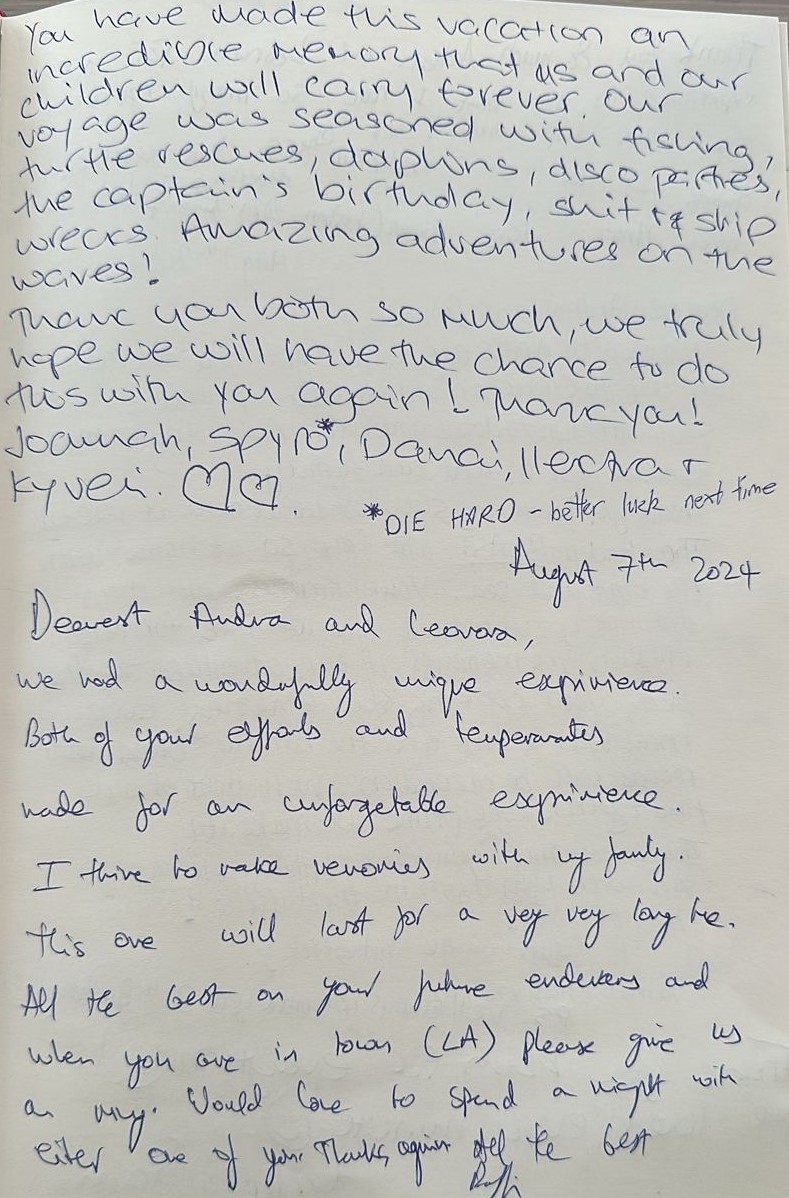 You have made this vacation an
incredible memory that us and our
children will carry forever. Our
voyage was seasoned with fishing,
turtle rescues, dolphins, disco parties,
the captain's birthday, shit & ship
wrecks. Amazing adventures on the
waves!
Thank you both so much, we truly
hope we will have the chance to do
this with you again! Thank you!
Joannah, Spyro*, Danai, Ilectra +
Kyveli. ♡♡.
*DIE HARD - better luck next time
August 7th 2024
Dearest Andrea and
we had a wonderfully unique exprivience.
Both of your efforts and
made for an unforgetable exprivience.
I thrive to make memories with my family.
this one will last for a very very long time.
All the best on your future endevers and
when you are in town (LA) please give us
a ring. Would love to spend a night with
eiter one of you. Thanks again All the best
Raffi